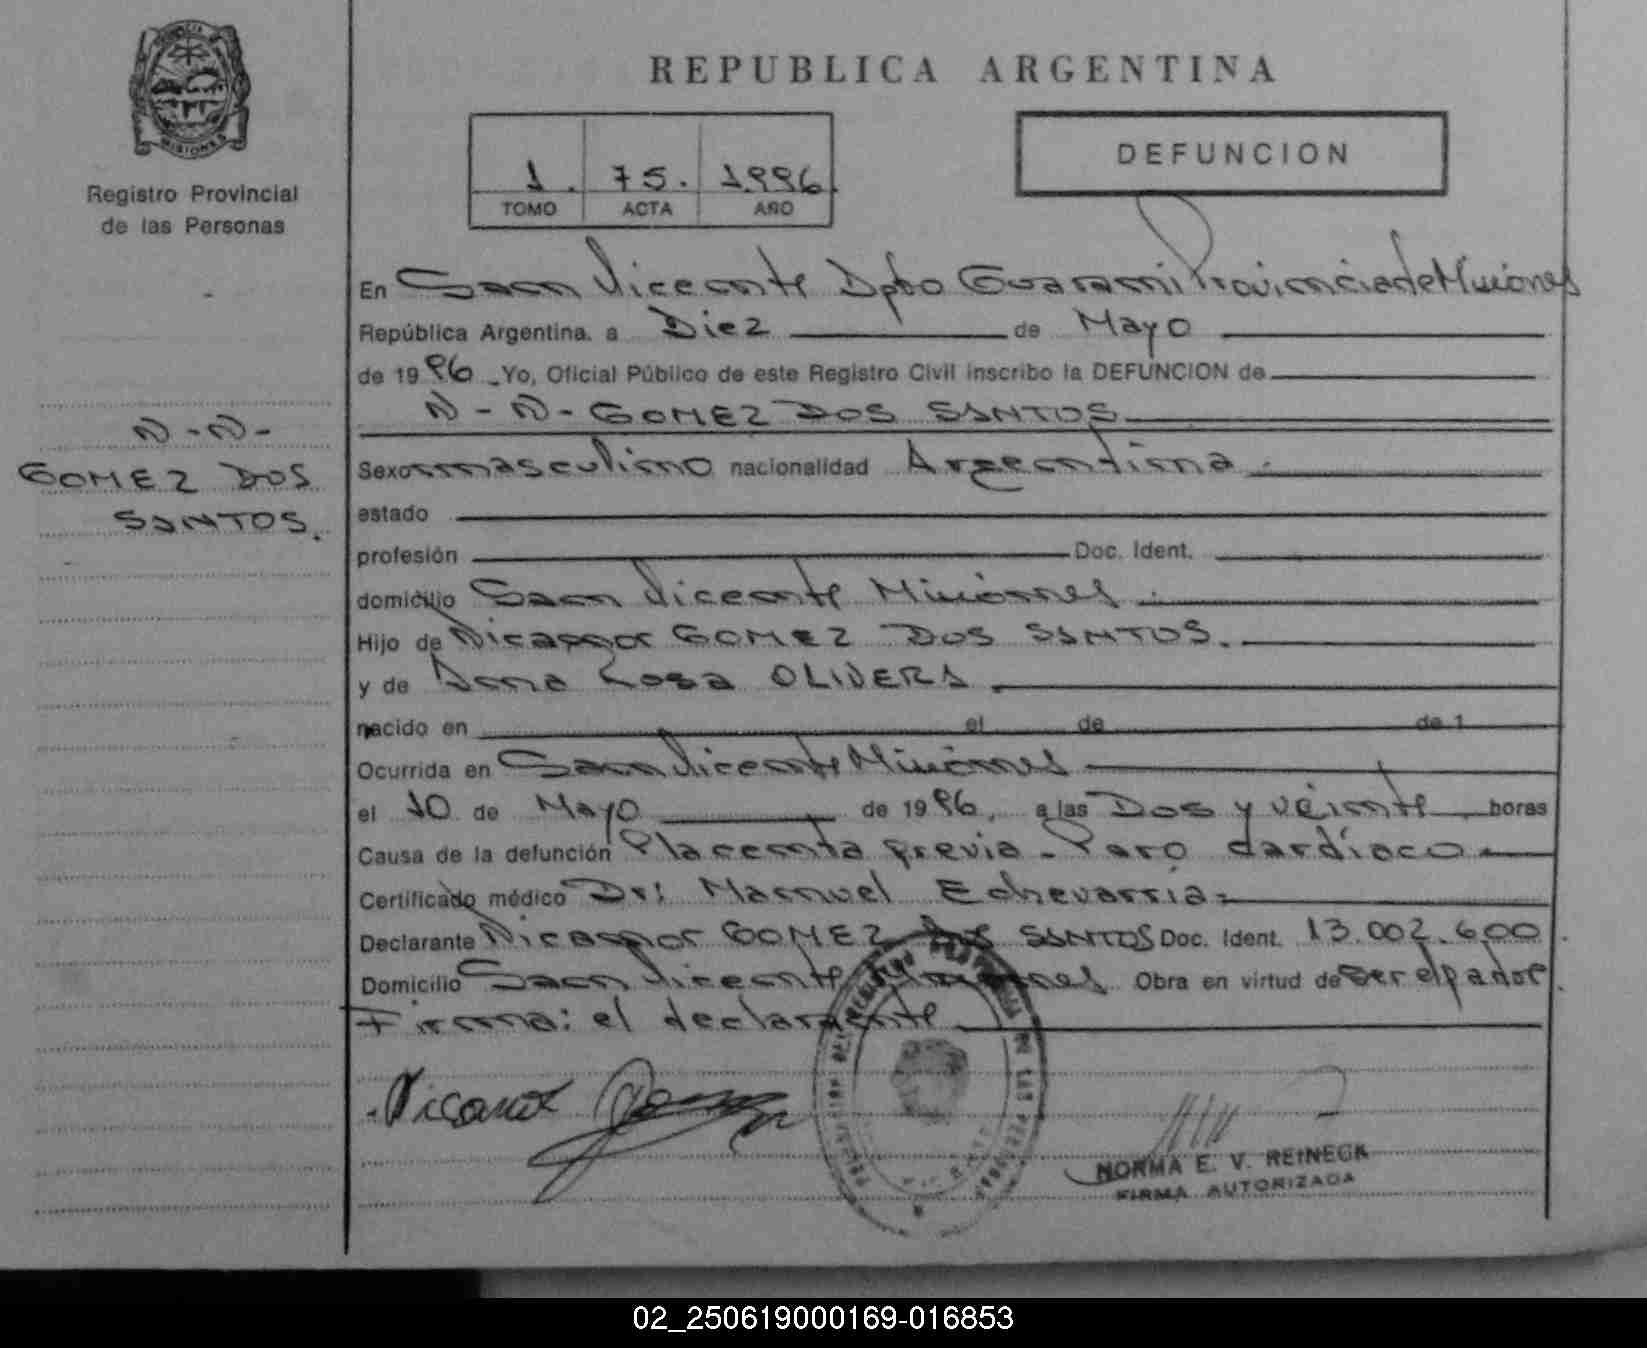 MISIONES
Registro Provincial
de las Personas
REPUBLICA ARGENTINA
1. 75. 1996.
TOMO ACTA AÑO
DEFUNCION
En San Vicente Dpto Guarani Provincia de Misiones
República Argentina. a Diez de Mayo
de 1996. Yo, Oficial Público de este Registro Civil inscribo la DEFUNCION de
N-N- GOMEZ DOS SANTOS
N-N-
GOMEZ DOS
SANTOS.
Sexo masculino nacionalidad Argentina.
estado
profesión Doc. Ident.
domicilio San Vicente Misiones.
Hijo de Nicanor GOMEZ DOS SANTOS.
y de Anna Rosa OLIVERA.
nacido en el de de 1
Ocurrida en San Vicente Misiones
el 10 de Mayo de 1996, a las Dos y veinte horas
Causa de la defunción Placenta previa - Paro cardíaco
Certificado médico Dr: Manuel Echevarria-
Declarante Nicanor GOMEZ DOS SANTOS Doc. Ident. 13.002.600.
Domicilio San Vicente Misiones Obra en virtud de ser el padre.
Firma: el declarante
Nicanor
NORMA E. V. REINECK
FIRMA AUTORIZADA
02_250619000169-016853